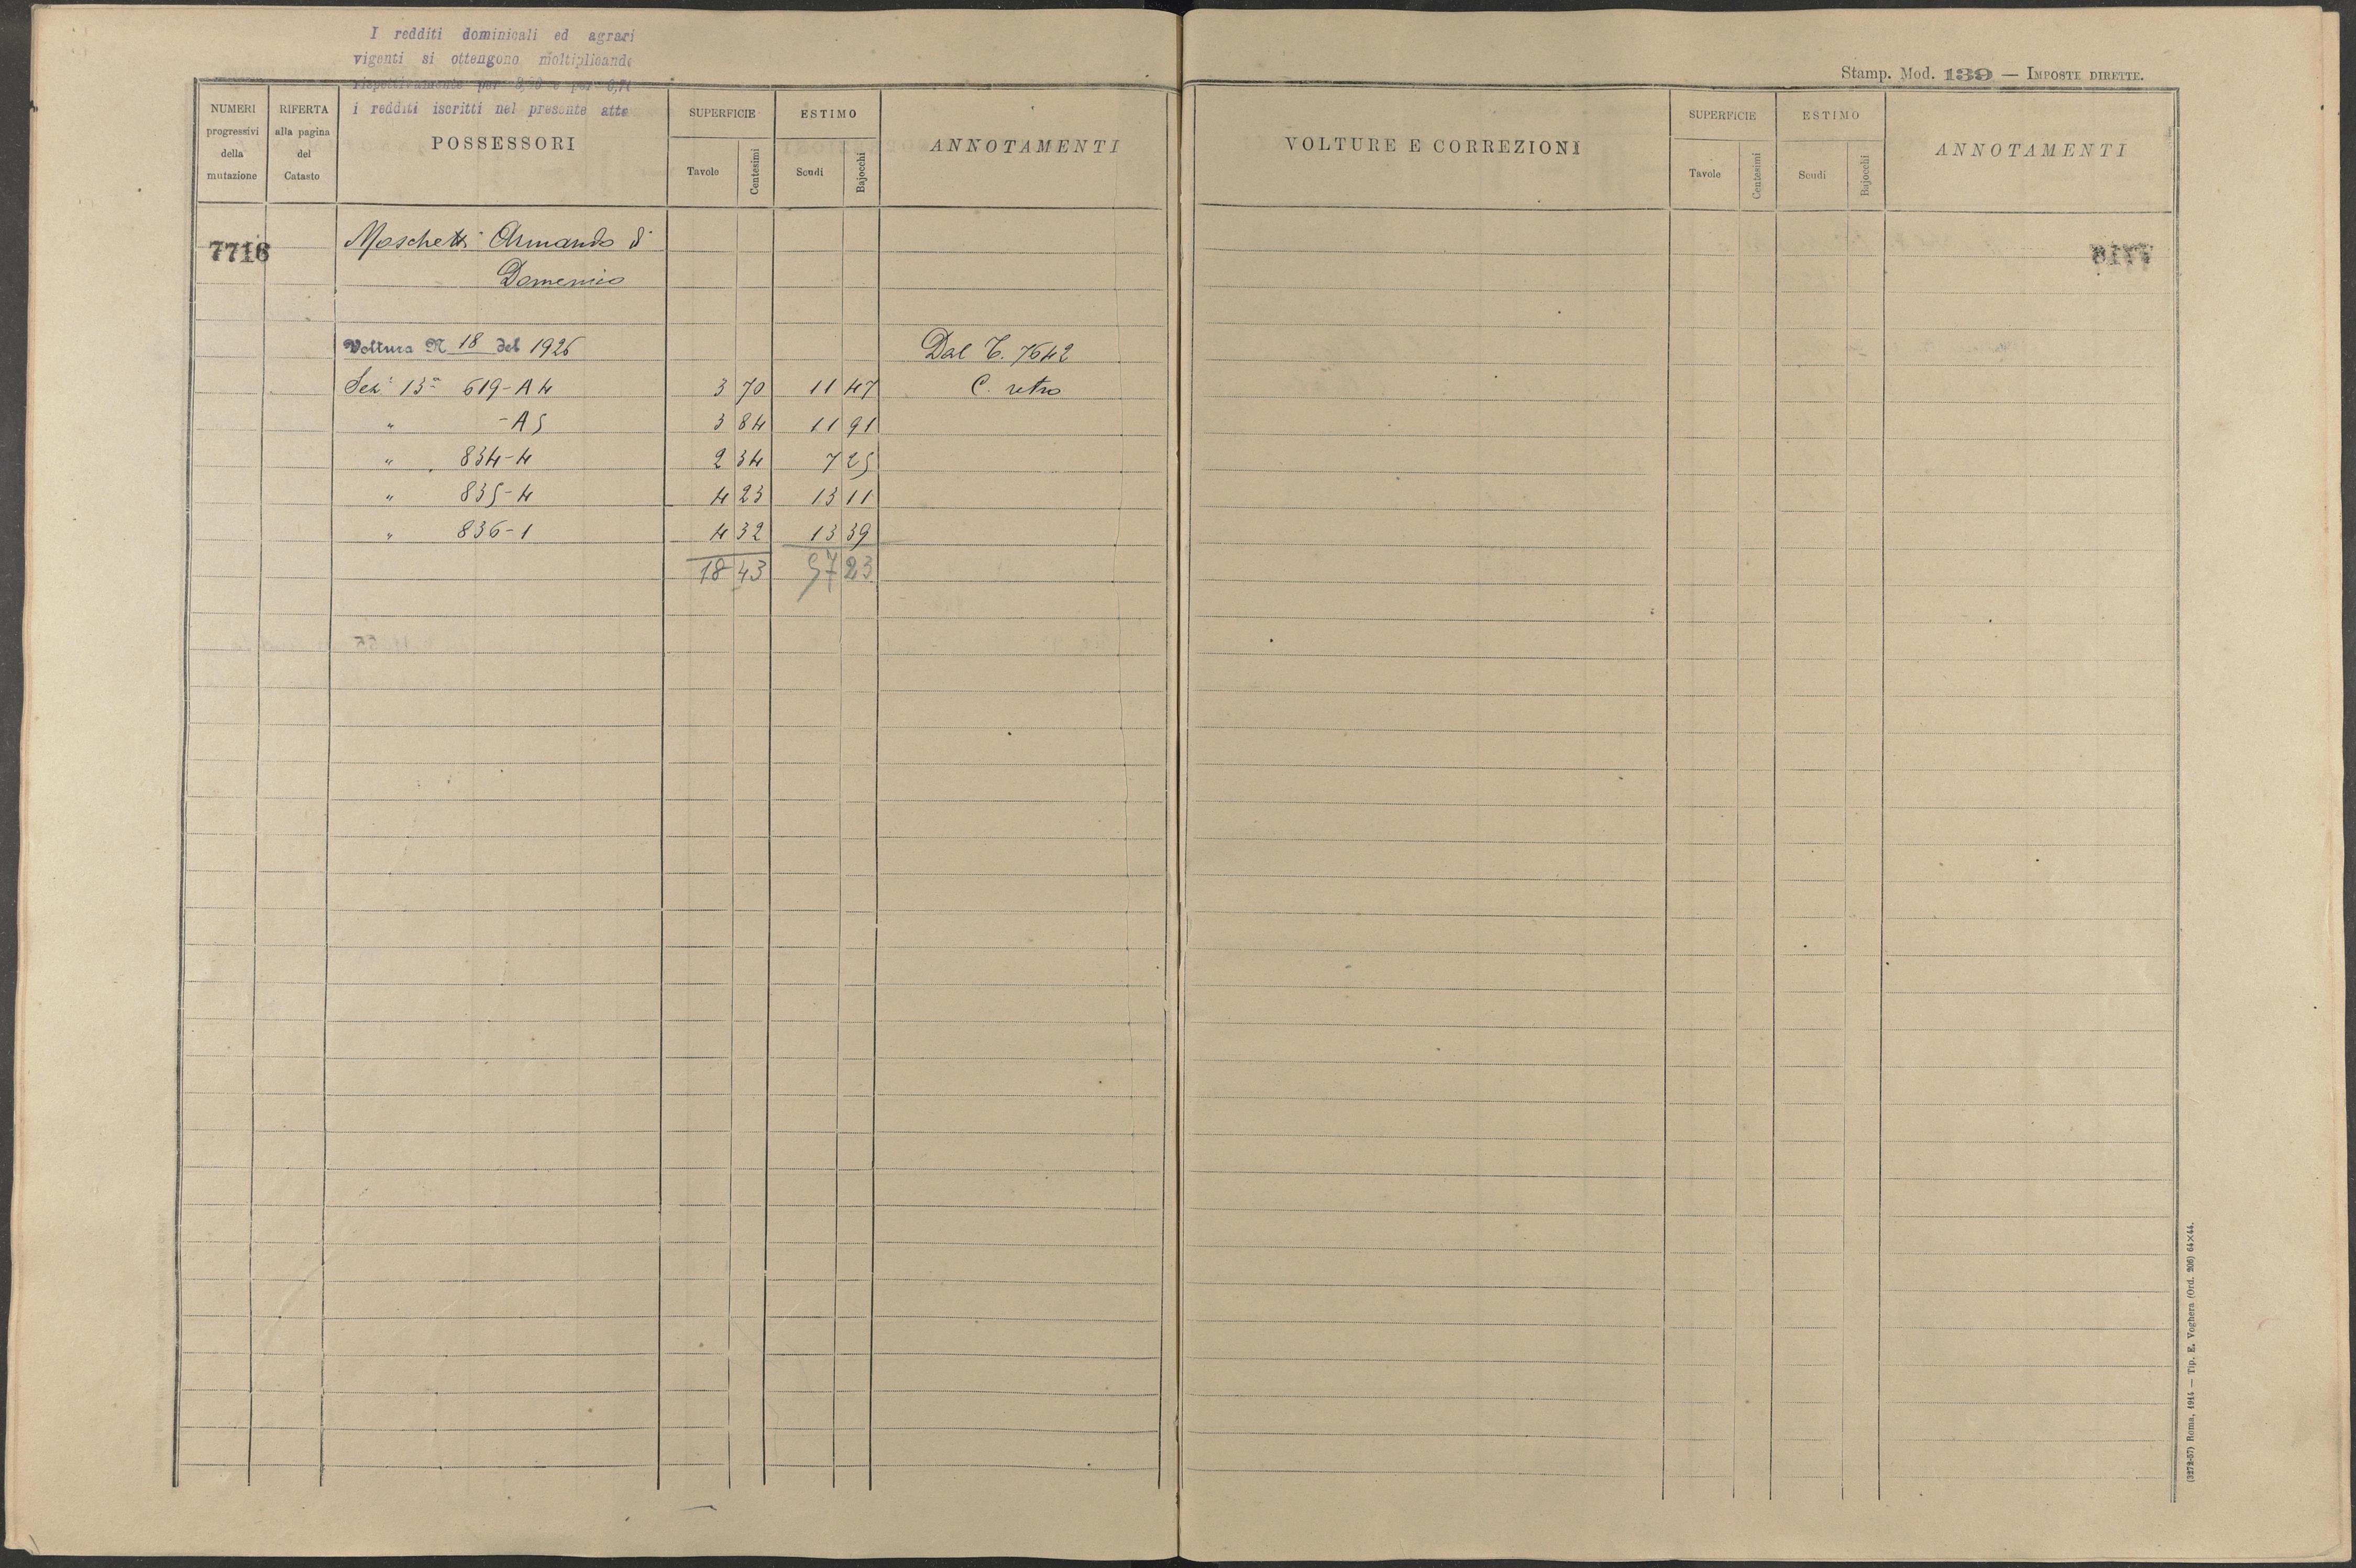 I redditi dominicali ed agrari
vigenti si ottengono moltiplicando
rispettivamente per e per
i redditi iscritti nel presente atto
Stamp. Mod. 139 — IMPOSTE DIRETTE.
NUMERI progressivi della mutazione
RIFERTA alla pagina del Catasto
POSSESSORI
SUPERFICIE Tavole Centesimi
ESTIMO Scudi Bajocchi
ANNOTAMENTI
7716 Moschetti Armando di
Domenico
Voltura N 18 del 1926 Dal T. 7642
Sez. 13ª 619-A4 3 70 11 47 C. retro
" -A5 3 84 11 91
" 834-4 2 34 7 25
" 835-4 4 23 13 11
" 836-1 4 32 13 39
18 43 57 23
VOLTURE E CORREZIONI
SUPERFICIE Tavole Centesimi
ESTIMO Scudi Bajocchi
ANNOTAMENTI
(3272-57) Roma, 1914 — Tip. E. Voghera (Ord. 206) 64×44.